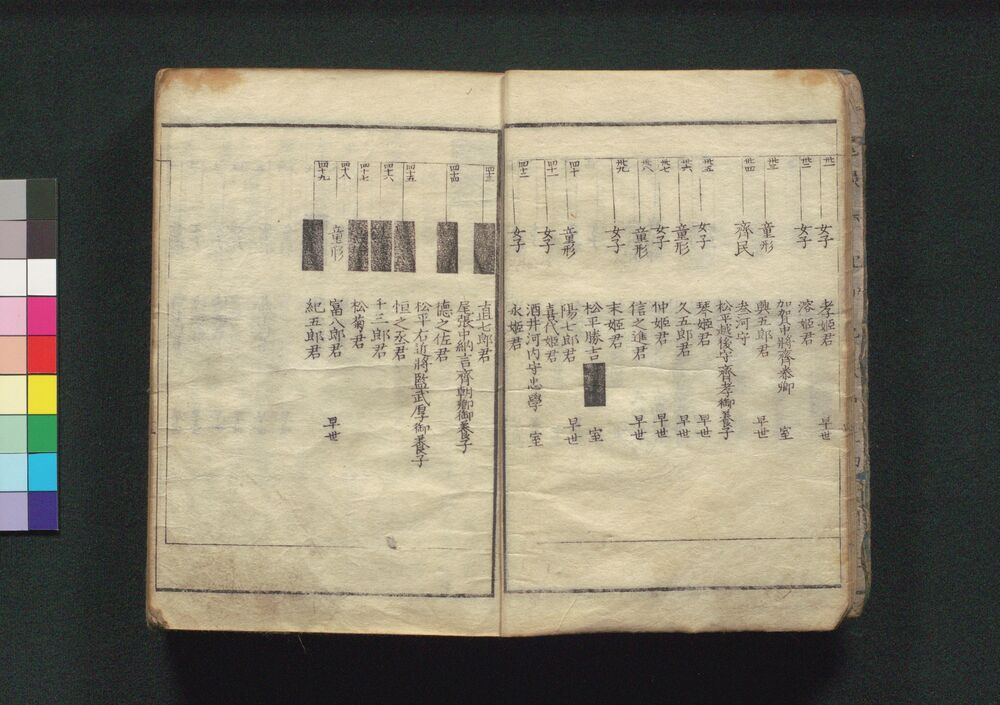 卅一
女子
孝姫君　早世
卅二
女子
溶姫君
加賀中將齊泰卿　室
卅三
童形
興五郎君　早世
卅四
齊民
参河守
松平越後守齊孝御養子
卅五
女子
琴姫君　早世
卅六
童形
久五郎君　早世
卅七
女子
仲姫君　早世
卅八
童形
信之進君　早世
卅九
女子
末姫君
松平勝吉　室
四十
童形
陽七郎君　早世
四十一
女子
喜代姫君
酒井河内守忠學　室
四十二
女子
永姫君
四十三
直七郎君
尾張中納言齊朝卿御養子
四十四
徳之佐君
松平右近將監武厚御養子
四十五
恒之丞君
四十六
千三郎君
四十七
松菊君
四十八
童形
富八郎君　早世
四十九
紀五郎君